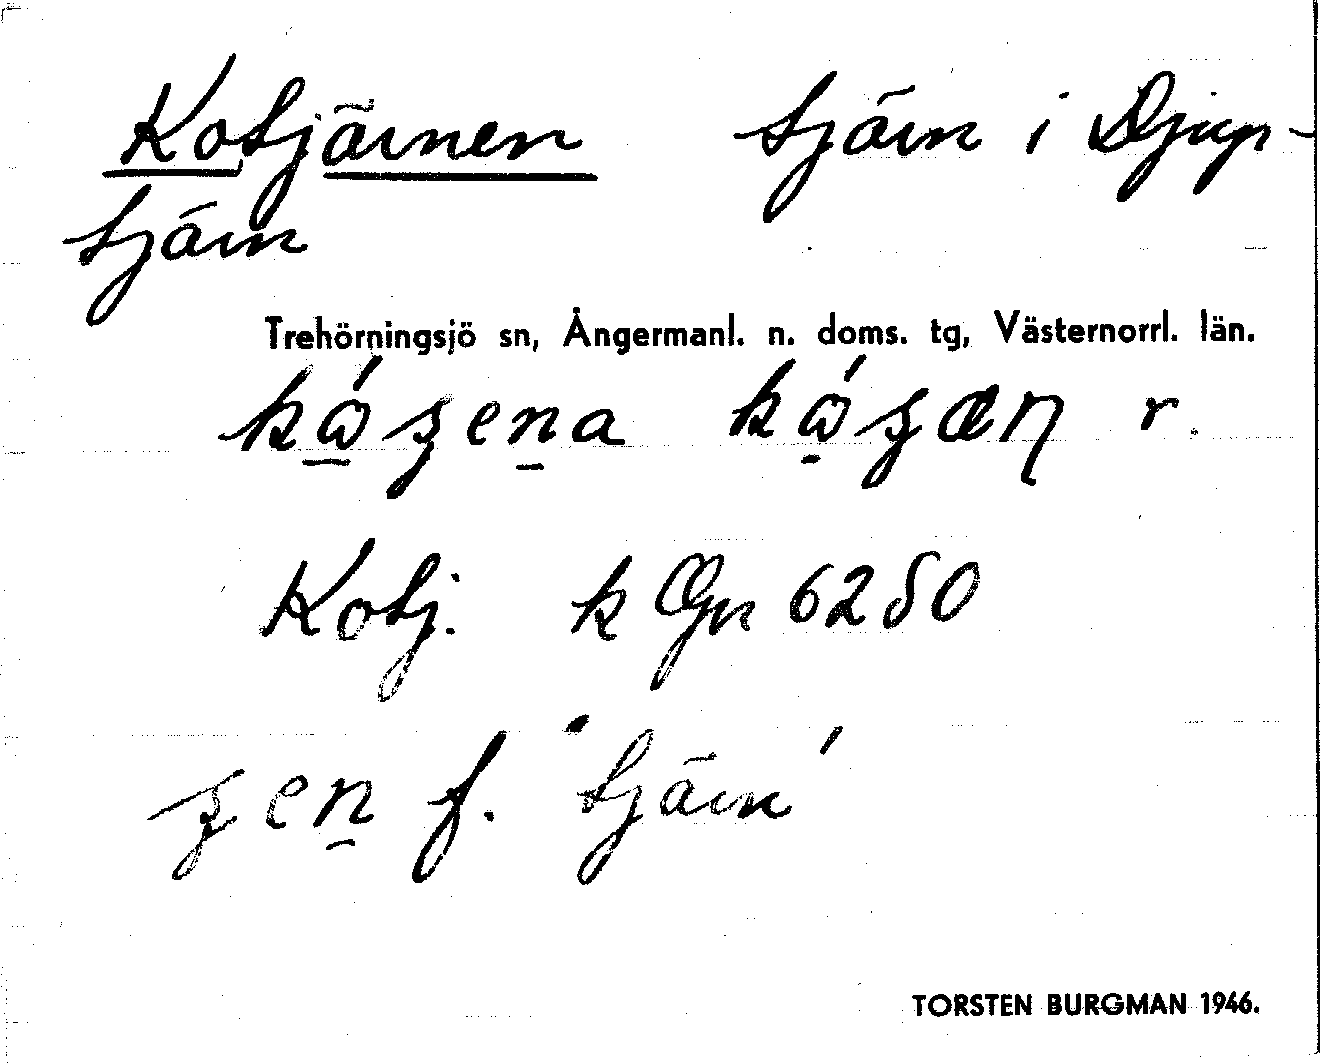 Kotjärnen tjärn i Djup-
tjärn
Trehörningsjö sn, Ångermanl. n. doms. tg, Västernorrl. län.
r.
Kotj. k Gn 6250
f. 'tjärn'
TORSTEN BURGMAN 1946.